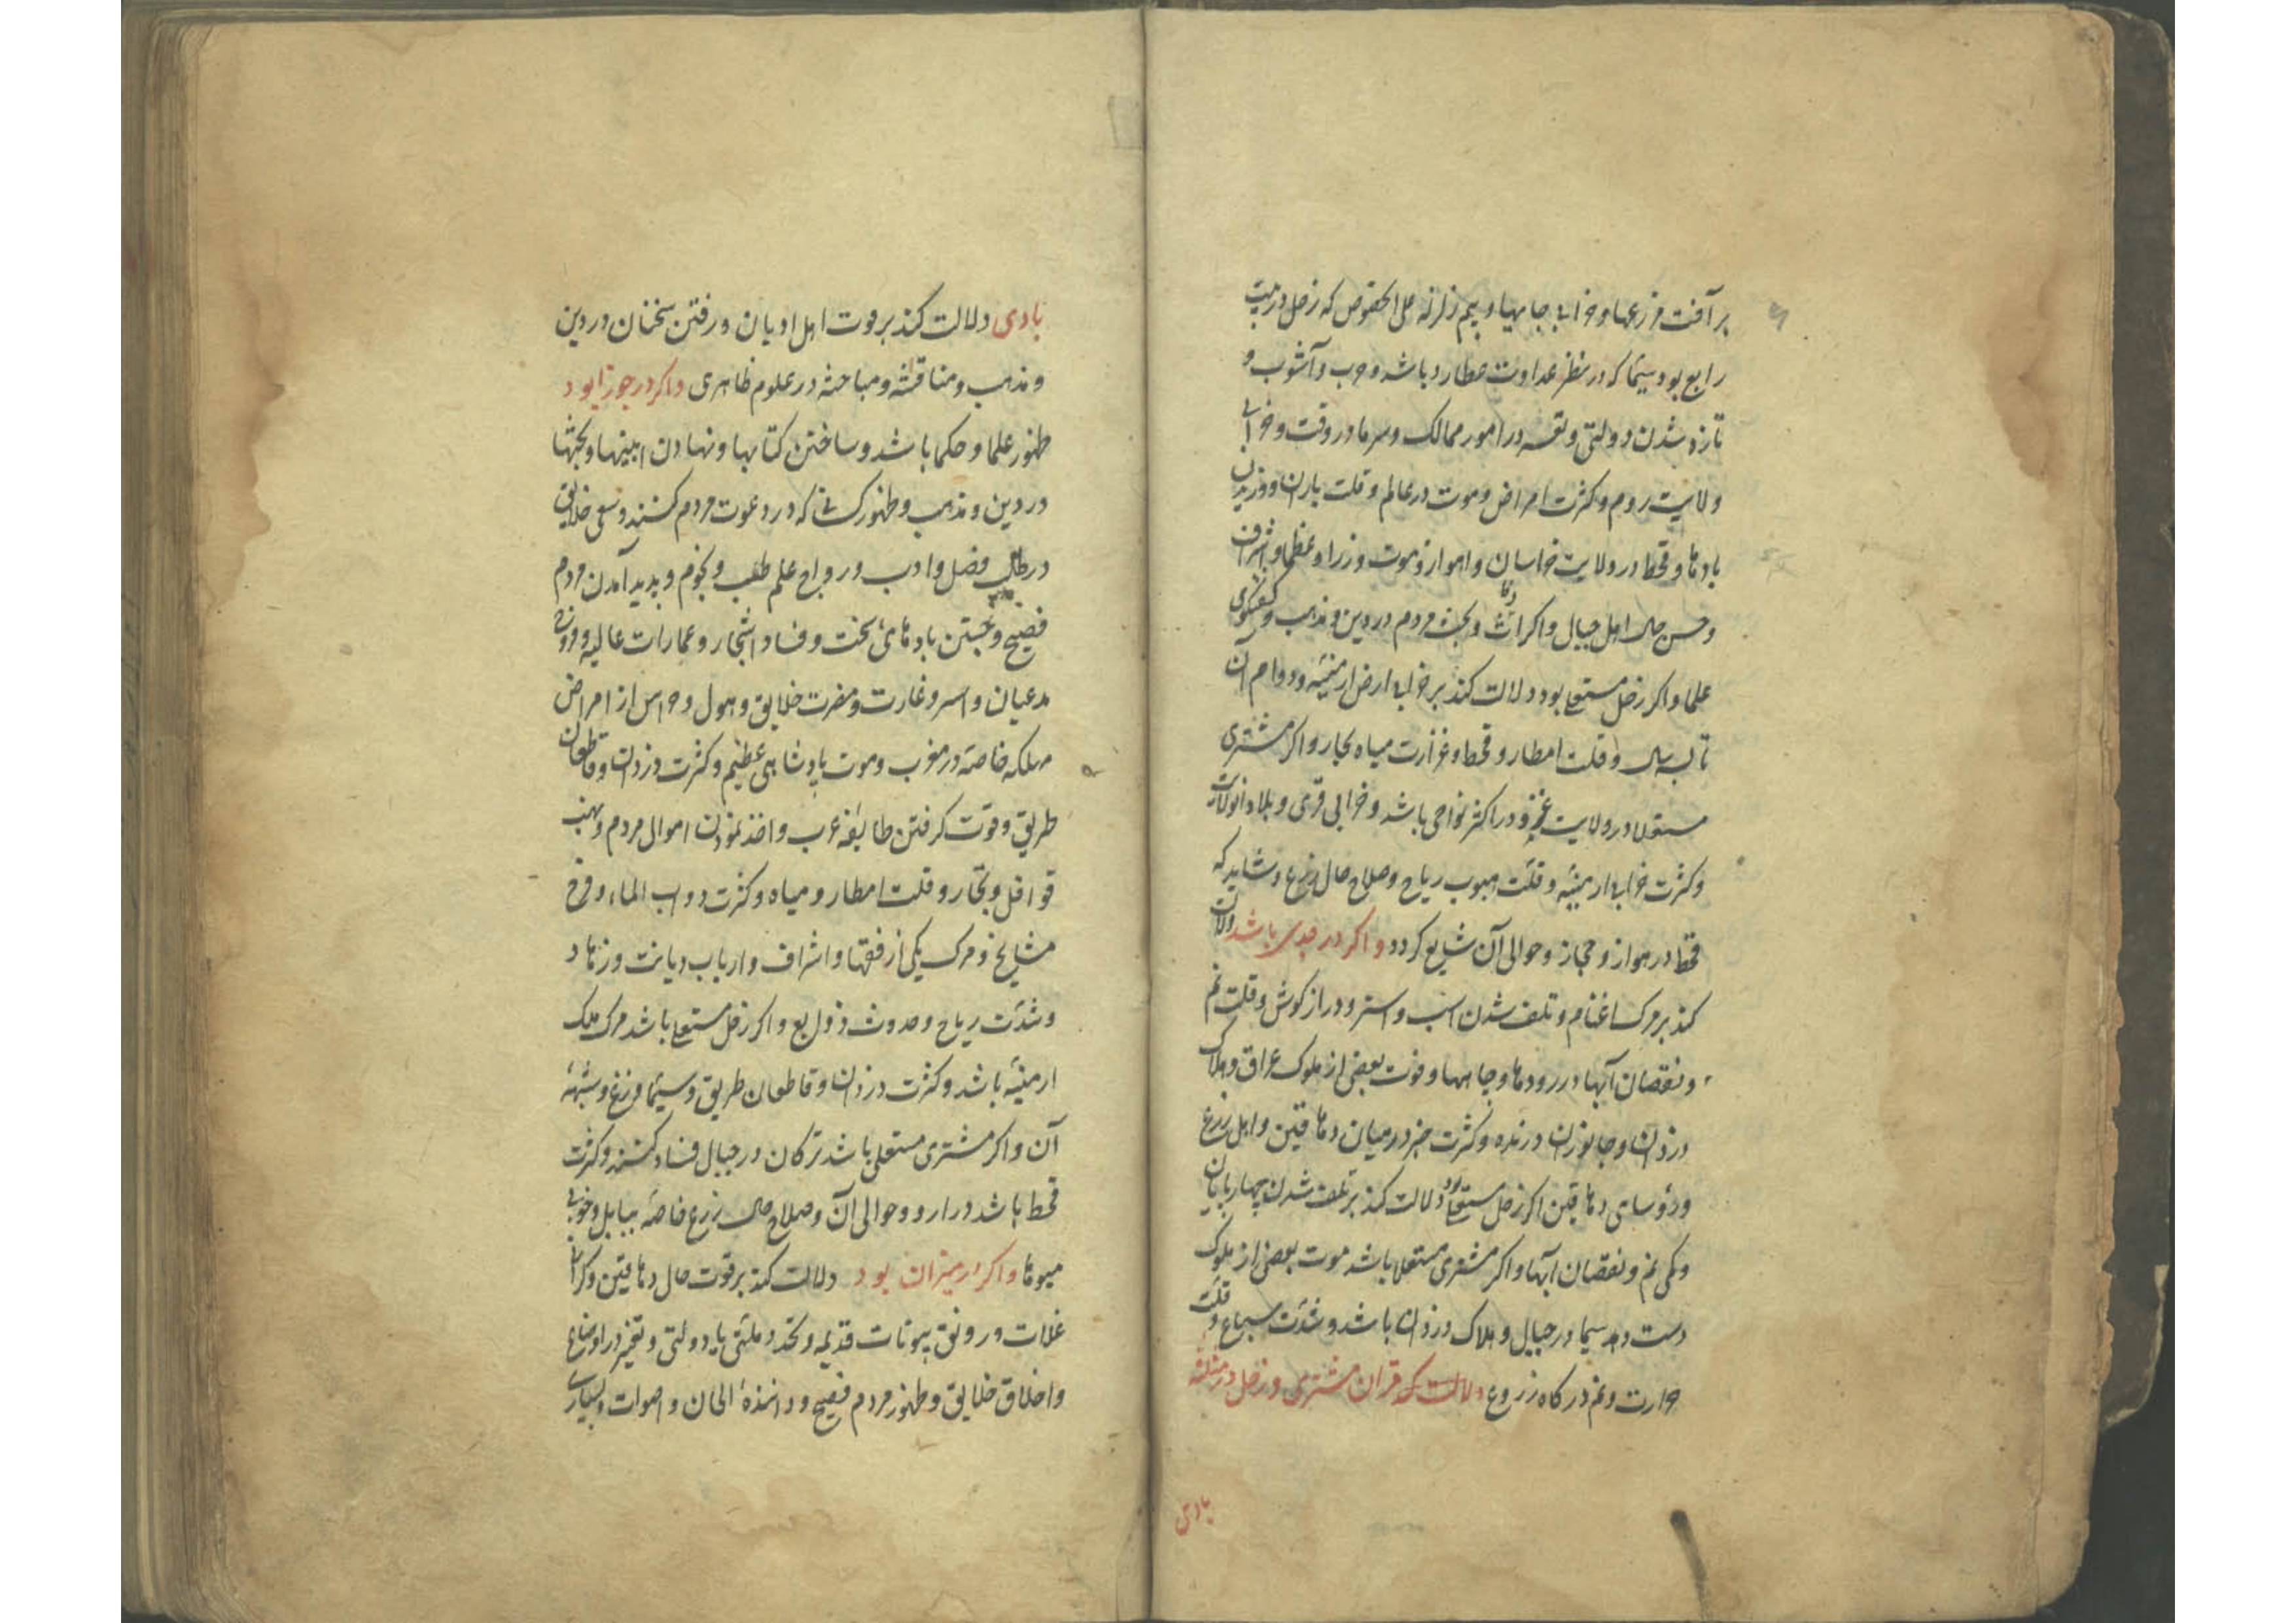 بر آفت مزرعها و خرابی جایها و بیم زلزله علی الخصوص که زحل در بیت
رابع بود سیما که در نظر عداوت عطارد باشد و حرب و آشوب و
تازه شدن دولتی و تغیر در امور ممالک و سرما در وقت و خرابی
ولایت روم و کثرت امراض و موت در عالم و قلت باران و وزیدن
بادها و قحط در ولایت خراسان و اهواز و موت وزرا و عظما و اشراف
و حسن حال اهل جبال و اکراث و بحث مردم در دین و مذهب و گفتگوی
علما و اکر زحل مستعلی بود دلالت کند بر خرابی ارض ارمنیه و دوام آن
تا سه سال و قلت امطار و قحط و غزارت میاه بحار و اکر مشتری
مستعلا در ولایت و در اکثر نواحی باشد و خرابی قری و بلاد
و کثرت خرابی ارمنیه و قلت هبوب ریاح و صلاح حال زرع و شاید که
قحط در هواز و حجاز و حوالی آن شایع کردد و اکر در جدی باشد دلالت
کند بر مرک اغنام و تلف شدن اسب و استر و دراز کوش و قلت نم
و نقصان آبها در رودها و چاهها و فوت بعضی از ملوک عراق و هلاک
دزدان و جانوران درنده و کثرت خیر در میان دهاقین و اهل زرع
و رؤسای دهاقین اکر زحل مستعلی بود دلالت کند بر تلف شدن چهارپایان
و کمی نم و نقصان آبها و اکر مشتری مستعلا باشد موت بعضی از ملوک
دست دهد سیما در جبال و هلاک دزدان باشد و شدت سباع و قلت
حرارت و نم در کاه زروع دلالت که قران مشتری و زحل در مثلثه
بادی
بادی دلالت کند بر قوت اهل ادیان و رفتن سخنان در دین
و مذهب و مناقشه و مباحثه در علوم ظاهری و اکر در جوزا بود
ظهور علما و حکما باشد و ساختن کتابها و نهادن ابنیها و بحثها
در دین و مذهب و ظهور کسانی که در دعوت مردم کنند و سعی خلایق
در طلب فضل و ادب و رواج علم طب و نجوم و پدید آمدن مردم
فصیح و جستن بادهای سخت و فساد اشجار و عمارات عالیه و
مدعیان و اسر و غارت و مضرت خلایق و هول و هراس از امراض
مهلکه خاصه در مغرب و موت پادشاهی عظیم و کثرت دزدان و قاطعان
طریق و قوت کرفتن طایفه عرب و اخذ نمودن اموال مردم و نهب
قوافل و تجار و قلت امطار و میاه و کثرت دواب الماء و فرح
مشایخ و مرک یکی از فقها و اشراف و ارباب دیانت و زهاد
و شدت ریاح و حدوث زوابع و اکر زحل مستعلی باشد مرک ملک
ارمنیه باشد و کثرت دزدان و قاطعان طریق و سیما و شبهه
آن و اکر مشتری مستعلی باشد ترکان در جبال فساد کنند و کثرت
قحط باشد در ارو و حوالی آن و صلاح حال زرع خاصه ببابل و خوبی
میوها و اکر در میزان بود دلالت کند بر قوت حال دهاقین و کرانی
غلات و رونق بیوتات قدیمه و تجدد ملتی یا دولتی و تغیر در اوضاع
و اخلاق خلایق و ظهور مردم فصیح و دانندهٔ الحان و اصوات و بسیاری